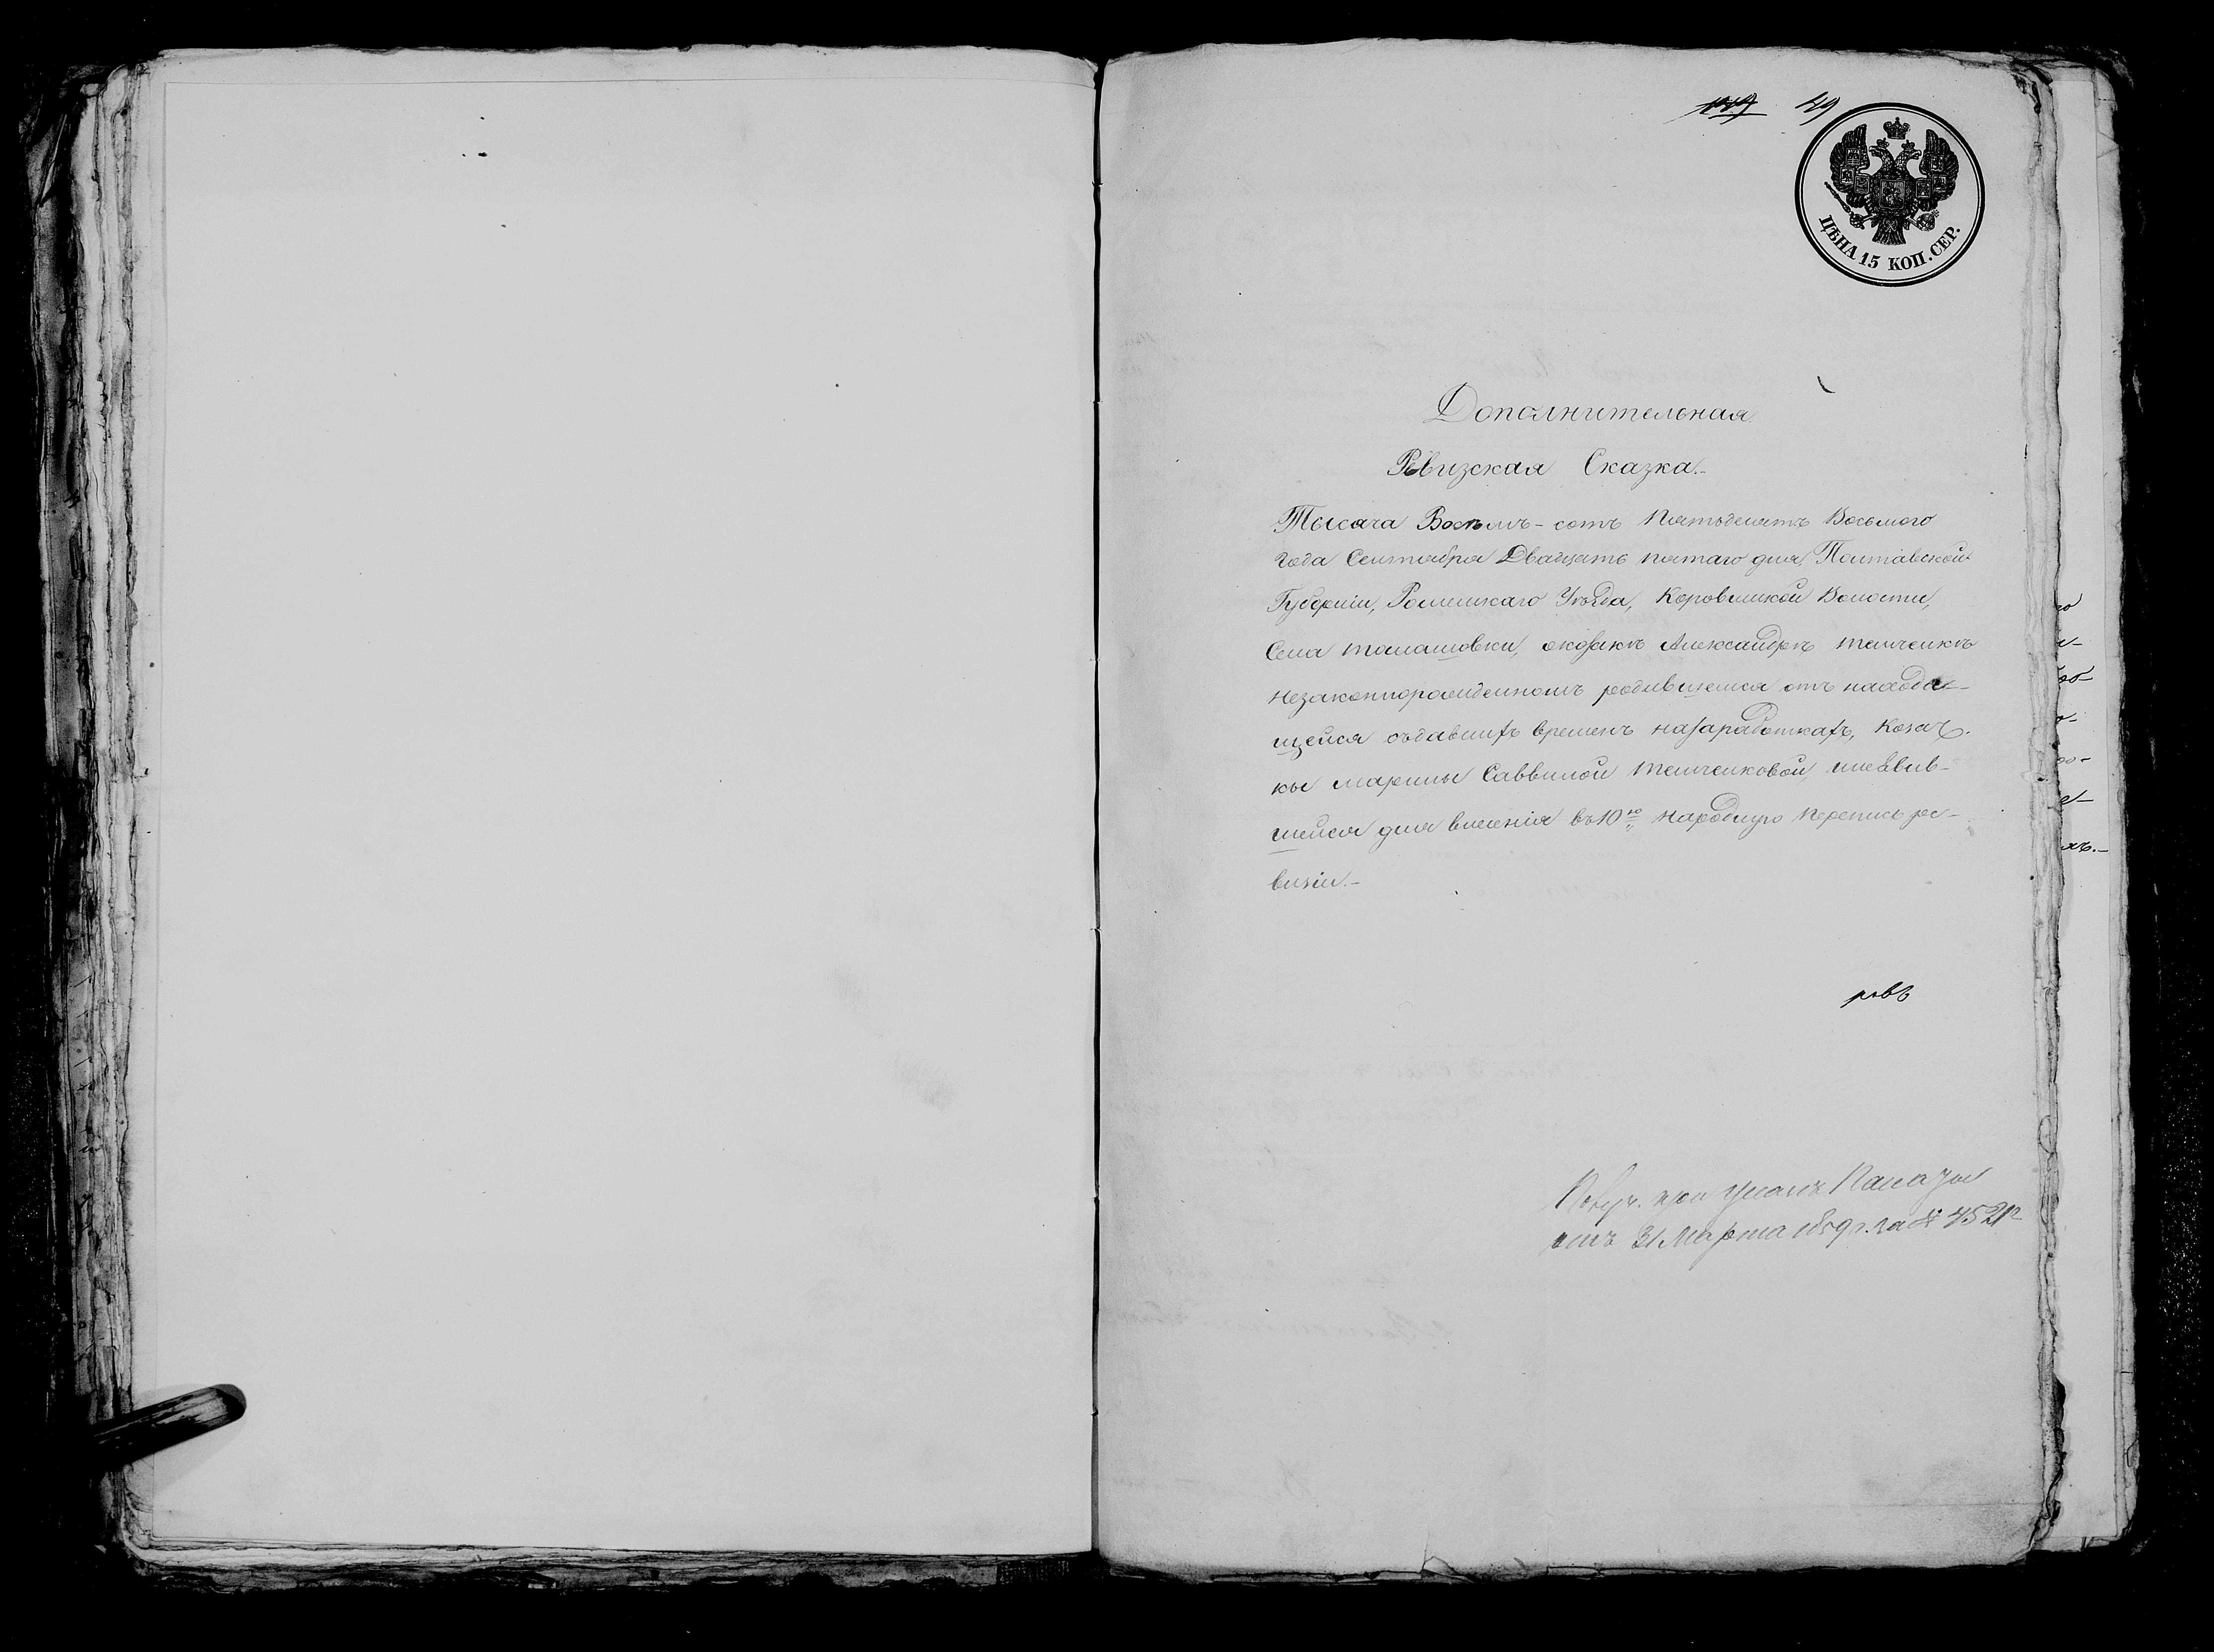 49
ЦѢНА 15 КОП. СЕР.
Дополнительная
Ревизская Сказка.-
Тысяча Восемъ-сотъ Пятьдесятъ Восьмого
года Сентября Двадцать пятаго дня, Полтавской
Губерніи, Роменскаго Уѣзда, Коровинской Волости,
Села Талалаовки, окозакѣ Александрѣ Темченкѣ
незаконнорожденномъ родившемся отъ находя-
щейся съдавнихъ временъ назаработкахъ, Козач-
ки Марины Саввиной Темченковой, неявив-
шейся для внесенія въ 10ю народную перепись ре-
визіи.-
ревъ
Получ. при указѣ Палаты
отъ 31 Марта 1859 г. за №